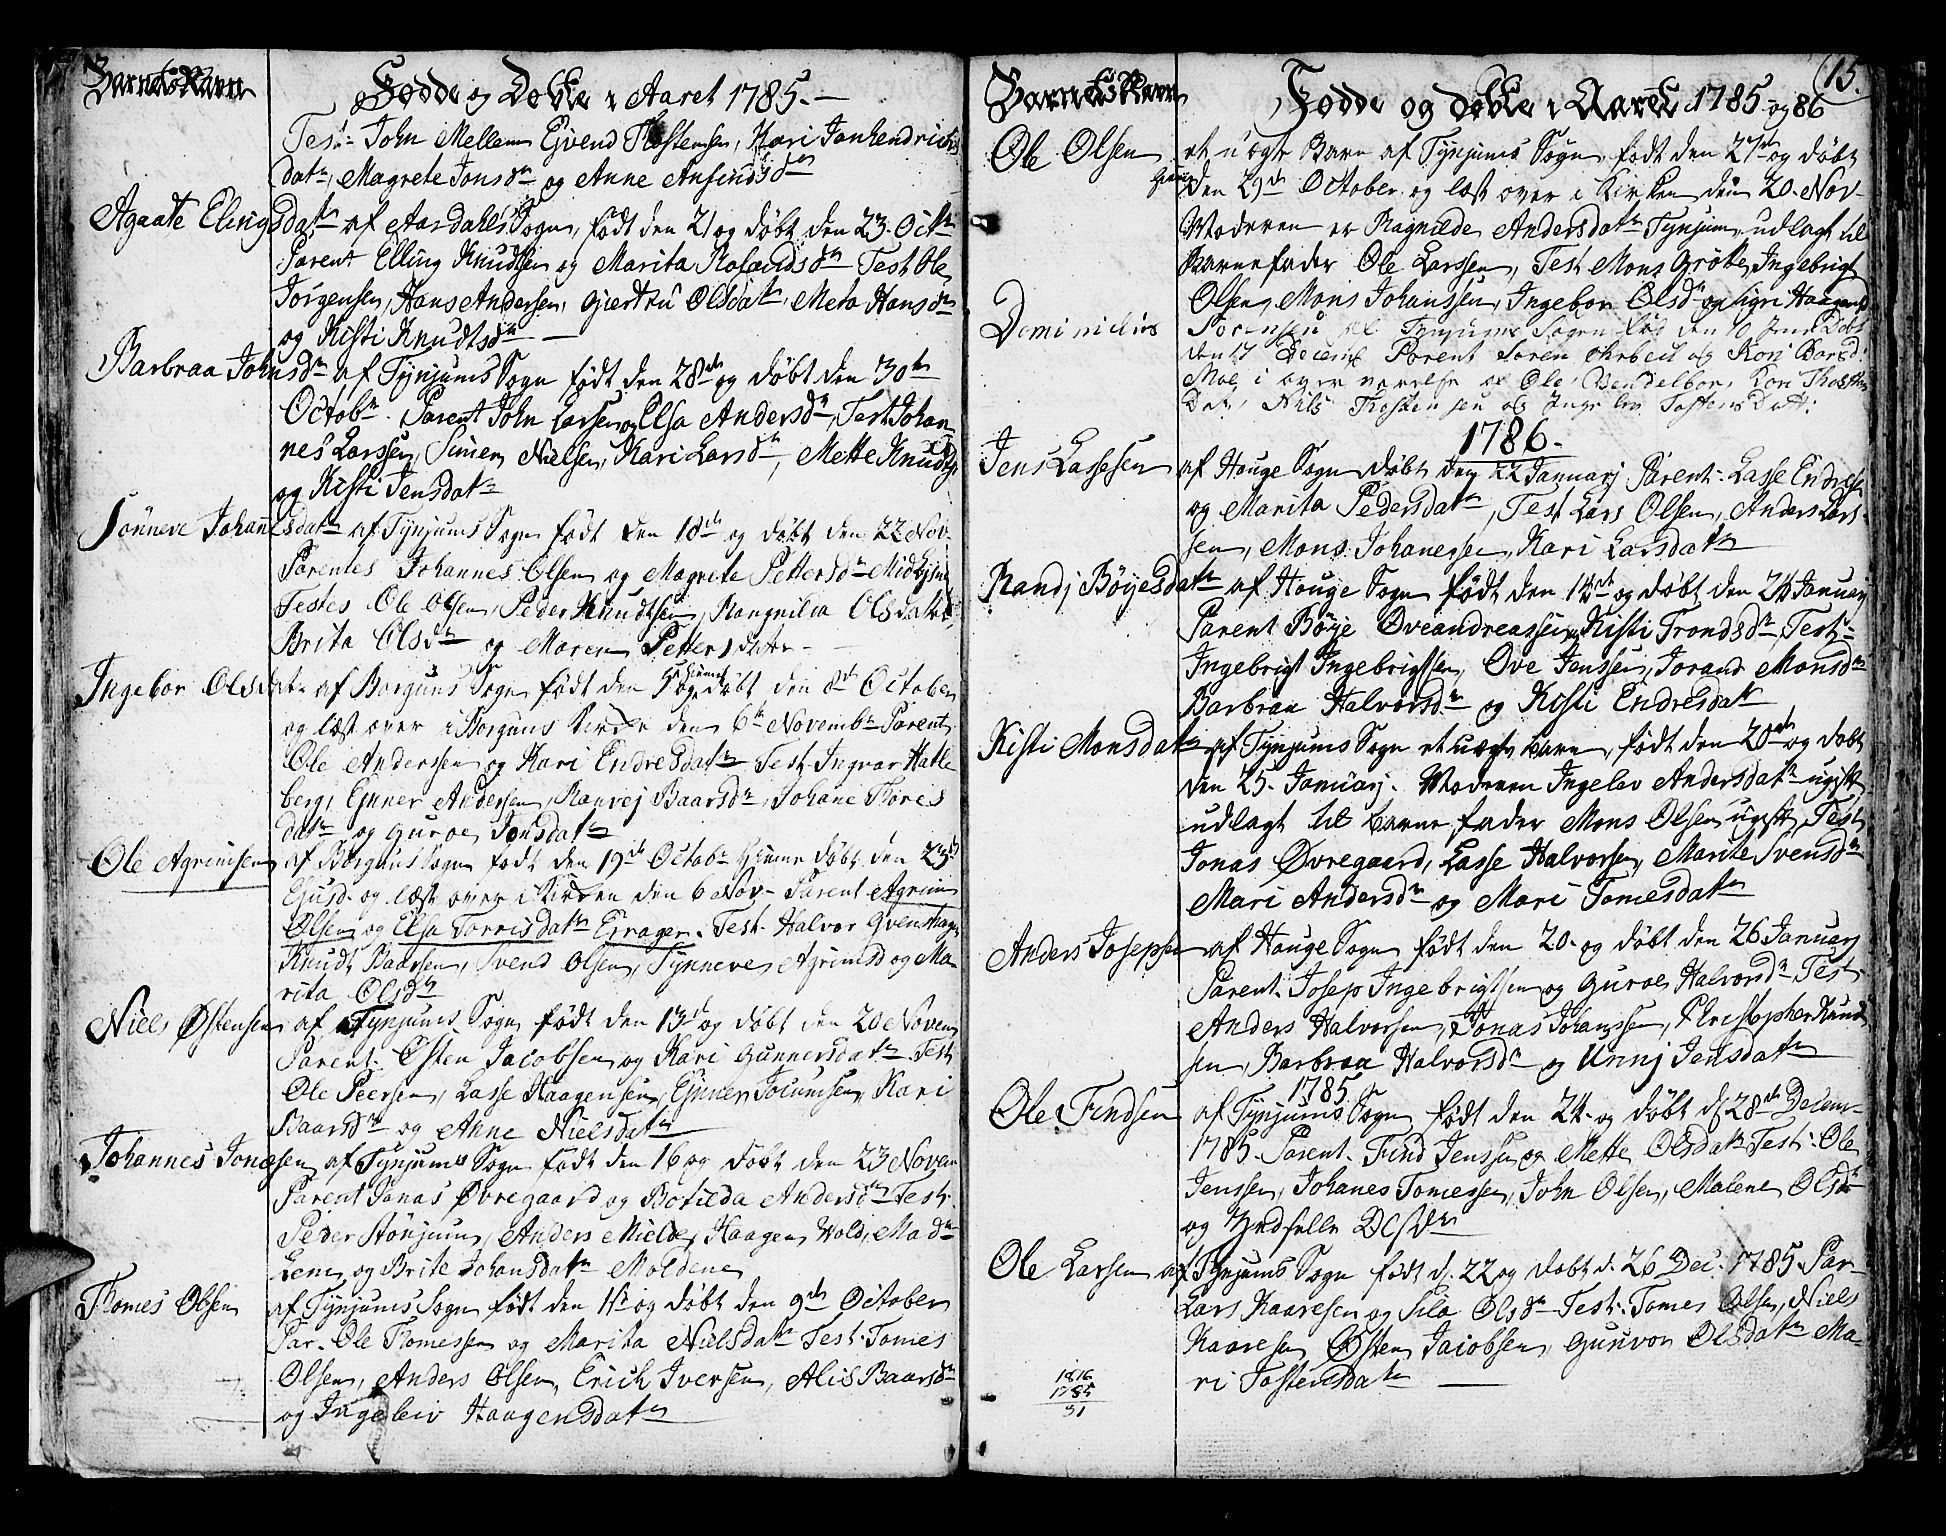 Barnets Navn
Fødde og Døbte i Aaret 1785.
Test: John Mellem Ejvend Thostensen, Kari Janhendrichs
datr, Magrete Jonsdr og Anne Ansindsdr
Agaate Elingsdatr af Aardahls Sogn, født den 21 og døbt den 23. Octbr
Parent Elling Knudsen og Marita Rosandsdr Test Ole
Jørgensen, Hans Andersen, Giertru Olsdatr, Meta Hansdr
og Kisti Knudtsdr
Barbraa Johnsdr af Tynjums Sogn født den 28de og døbt den 30te
Octobr. Parent John Larsen og Elsa Andersdr, Test Johan
nes Larsen, Simen Nielsen, Kari Larsdr, Mette Knudtsdr
og Kisti Jensdatr
Sønneve Johannesdatr af Tynjums Sogn født den 18de og døbt den 22 Nov.
Parentes Johannes Olsen og Magrete Pettersdr Midlysne
Testes Ole Olsen, Peder Knudtsen, Rangnilia Olsdatr,
Brita Olsdr og Maren Petters datr
Ingebor Olsdatr af Borguns Sogn født den 5 og hieme døbt den 8de October
og læst over i Borguns Kirke den 6te Novembr Parent
Ole Andersen og Kari Endresdatr Test Ingvar Hatle
berg, Ejnner Andersen, Ranvej Baarsdr, Johane Thores
datr og Guroe Jonsdatr
Ole Agrimsen af Borguns Sogn født den 19de Octobr Hieme døbt den 23de
Ejusd. og læst over i Kirken den 6 Nov. Parent Agrim
Olsen og Elsa Torrisdatr Erragen. Test. Halvor Qvenshagen
Knudt Baarsen, Svend Olsen, Synneve Agrimsd og Ma
rita Olsdr
Niels Østensen af Tynjums Sogn født den 13de og døbt den 20 Novem
Parent. Østen Jacobsen og Kari Gunnersdatr Test
Ole Peersen, Lasse Haagensen, Ejnner Jocumsen, Kari
Baarsdr og Anne Nielsdatr
Johannes Jonæsen af Tynjums Sogn født den 16 og døbt den 23 Novem
Parent Jonas Øvregaard og Botilda Andersdr Test.
Peder Stønjum, Anders Mielde, Haagen Wold, Madr
Lene og Brite Johansdatr Moldene
Thomes Olsen af Tynjums Sogn født den 1ste og døbt den 9de October
Par. Ole Thomessen og Marita Nielsdatr Test. Tomes
Olsen, Anders Olsen, Erich Iversen, Alis Baarsdr
og Ingeleiv Haagensdatr
Barnets Navn
Fødde og døbte i Aaret 1785 og 86
15.
Ole Olsen et uægte Barn af Tynjums Sogn, født den 27de og døbt
den 29de October og læst over i Kirken den 20. Nov
Moderen er Ragnilde Andersdatr Tynjum, udlagt til
Barnefader Ole Larssen, Test Mons Grøtte, Ingebrigt
Olsen, Mons Johanssen, Ingebor Olsdr og Sigri Haagensd
Dominicus Sørensen af Tynjums Sogn fød den 10 Døbt
den 17 Decemb Parent Søren og Kari Baarsd:
i overværelse af Ole Vendelboe, Kari Thosten
Datr, Nils Thostensen og Ingebor Tostens Datt:
1786.
Jens Lassesen af Houge Sogn døbt den 22 Januarj Parent. Lasse Endresen
og Marita Pedersdatr, Test Lars Olsen, Anders Lars-
sen, Mons Johanessen, Kari Larsdatr
Randj Bøyesdatr af Houge Sogn født den 14de og døbt den 24 Januarj
Parent Bøje Oveandreassen, Kisti Trondsdr, Test-
Ingebrigt Ingebrigtsen, Ove Jenssen, Jorand Monsdr
Barbraa Halvorsdr og Kisti Endresdatr
Kisti Monsdatr af Tynjums Sogn et uægte Barn, født den 20de og døbt
den 25. Januarj. Moderen Ingelev Andersdatr ugift
udlagt til Barnefader Mons Olsen ugift, Test
Jonas Øvregaard, Lasse Halvorsen, Marite Svensdr
Mari Andersdr og Mari Tomesdatr
Anders Josepsen af Houge Sogn født den 20. og døbt den 26 Januarj
Parent. Josep Ingebrigtsen og Guroe Halvorsdr Test.
Anders Halvorsen, Jonas Johanssen, Christopher Knud
sen, Barbraa Halvorsdr og Unnj Jensdatr
1785
Ole Findsen af Tynjums Sogn født den 24. og døbt d. 28de Decem-
1785. Parent. Find Jenssen og Mette Olsdatr Test: Ole
Jenssen, Johanes Tomessen, John Olsen, Malene Olsdr
og Olsdr
Ole Larsen af Tynjums Sogn født d. 22 og døbt d. 26 Dec. 1785. Par-
Lars Kaaresen og Sila Olsdr Test. Tomes Olsen, Niels
Kaaresen Østen Jacobsen, Gunvor Olsdatr Ma-
ri Tostensdatr
1816
1785
31